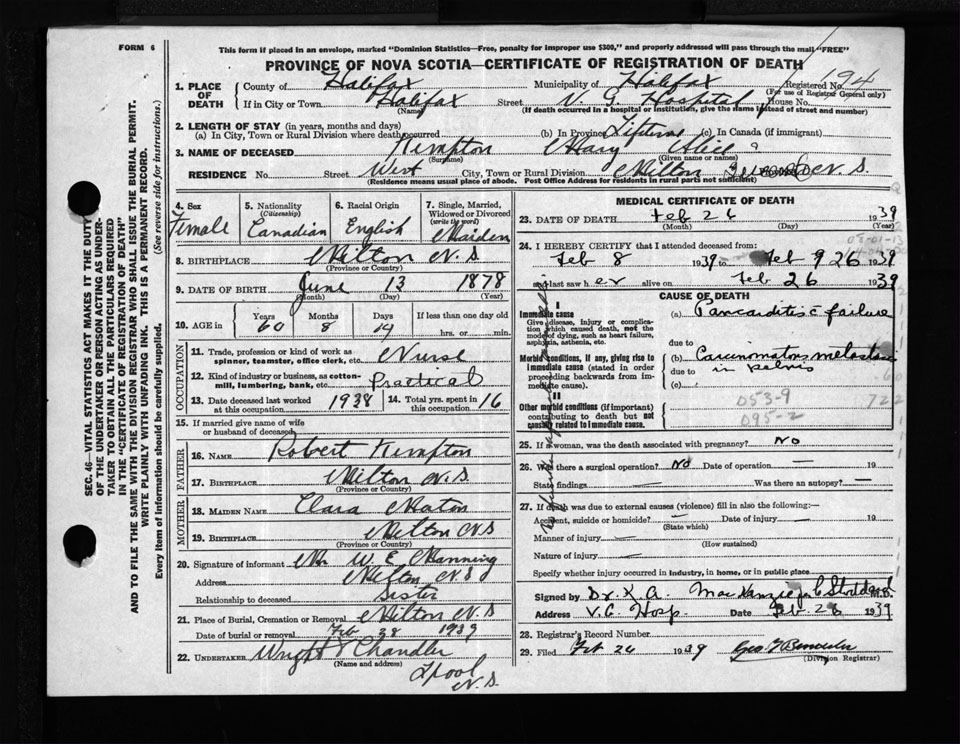 FORM 6
This form if placed in an envelope, marked "Dominion Statistics—Free, penalty for improper use $300," and properly addressed will pass through the mail "FREE"
PROVINCE OF NOVA SCOTIA—CERTIFICATE OF REGISTRATION OF DEATH
1. PLACE OF DEATH County of Halifax Municipality of Halifax Registered No. 94
(For use of Registrar General only)
If in City or Town Halifax Street V. G. Hospital House No.
(Name) (If death occurred in a hospital or institution, give the name instead of street and number)
2. LENGTH OF STAY (in years, months and days)
(a) In City, Town or Rural Division where death occurred (b) In Province Lifetime (c) In Canada (if immigrant)
3. NAME OF DECEASED Kempton Mary Alice
(Surname) (Given name or names)
RESIDENCE No. Street West City, Town or Rural Division Milton N. S.
(Residence means usual place of abode. Post Office Address for residents in rural parts not sufficient)
4. Sex Female
5. Nationality (Citizenship) Canadian
6. Racial Origin English
7. Single, Married, Widowed or Divorced (write the word) Maiden
8. BIRTHPLACE Milton N. S.
(Province or Country)
9. DATE OF BIRTH June 13 1878
(Month) (Day) (Year)
10. AGE in Years Months Days If less than one day old
60 8 14 hrs. or min.
OCCUPATION
11. Trade, profession or kind of work as spinner, teamster, office clerk, etc. Nurse
12. Kind of industry or business, as cotton-mill, lumbering, bank, etc. Practical
13. Date deceased last worked at this occupation 1938
14. Total yrs. spent in this occupation 16
15. If married give name of wife or husband of deceased
FATHER
16. NAME Robert Kempton
17. BIRTHPLACE Milton N. S.
(Province or Country)
MOTHER
18. MAIDEN NAME Clara
19. BIRTHPLACE Milton N S
(Province or Country)
20. Signature of informant W. E. Manning
Address Milton N S
Relationship to deceased Sister
21. Place of Burial, Cremation or Removal Milton N. S
Date of burial or removal Feb 28 1939
22. UNDERTAKER Wright & Chandler
(Name and address)
L'pool
N. S.
MEDICAL CERTIFICATE OF DEATH
23. DATE OF DEATH Feb 26 1939
(Month) (Day) (Year)
24. I HEREBY CERTIFY that I attended deceased from:
Feb 8 1939 to Feb 26 1939
and last saw her alive on Feb 26 1939
CAUSE OF DEATH
I
Immediate cause
Give disease, injury or complication which caused death, not the mode of dying, such as heart failure, asphyxia, asthenia, etc.
(a) Pancarditis c failure
due to
Morbid conditions, if any, giving rise to immediate cause (stated in order proceeding backwards from immediate cause).
(b) Carcinomatous metastases in pelvis
due to
(c)
II
Other morbid conditions (if important) contributing to death but not causally related to immediate cause.
053-9
095-2
722
25. If a woman, was the death associated with pregnancy? No
26. Was there a surgical operation? No Date of operation 19
State findings — Was there an autopsy? —
27. If death was due to external causes (violence) fill in also the following:—
Accident, suicide or homicide? — Date of injury — 19
(State which)
Manner of injury —
(How sustained)
Nature of injury —
Specify whether injury occurred in industry, in home, or in public place
Signed by Dr. K. A. MacKenzie per C Stoddard M.D.
Address V. G. Hosp Date Feb. 26 1939
28. Registrar's Record Number
29. Filed Feb 26 1939
(Division Registrar)
SEC. 46—VITAL STATISTICS ACT MAKES IT THE DUTY
OF THE UNDERTAKER OR PERSON ACTING AS UNDERTAKER TO OBTAIN ALL THE PARTICULARS REQUIRED
IN THE "CERTIFICATE OF REGISTRATION OF DEATH"
AND TO FILE THE SAME WITH THE DIVISION REGISTRAR WHO SHALL ISSUE THE BURIAL PERMIT.
WRITE PLAINLY WITH UNFADING INK. THIS IS A PERMANENT RECORD.
Every item of information should be carefully supplied. (See reverse side for instructions.)